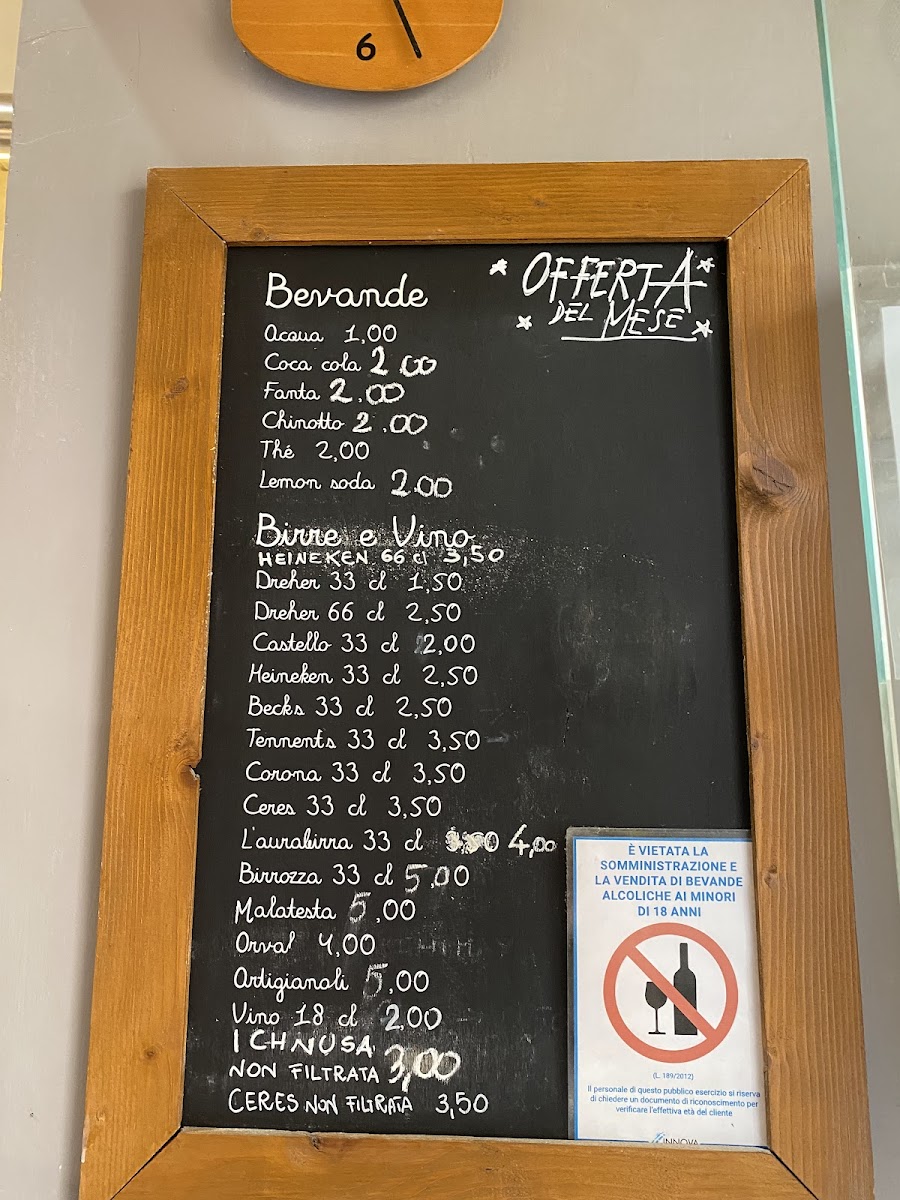 6
Bevande
Acqua 1,00
Coca cola 2.00
Fanta 2.00
Chinotto 2.00
Thé 2,00
Lemon soda 2.00
Birre e Vino
HEINEKEN 66 cl 3,50
Dreher 33 cl 1,50
Dreher 66 cl 2,50
Castello 33 cl 2,00
Heineken 33 cl 2,50
Becks 33 cl 2,50
Tennents 33 cl 3,50
Corona 33 cl 3,50
Ceres 33 cl 3,50
L'aurabirra 33 cl 4,00
Birrozza 33 cl 5,00
Malatesta 5,00
Orval 4,00
Artigianali 5,00
Vino 18 cl 2,00
ICHNUSA
NON FILTRATA 3,00
CERES NON FILTRATA 3,50
OFFERTA
DEL MESE
È VIETATA LA
SOMMINISTRAZIONE E
LA VENDITA DI BEVANDE
ALCOLICHE AI MINORI
DI 18 ANNI
(L. 189/2012)
Il personale di questo pubblico esercizio si riserva
di chiedere un documento di riconoscimento per
verificare l'effettiva età del cliente
INNOVA